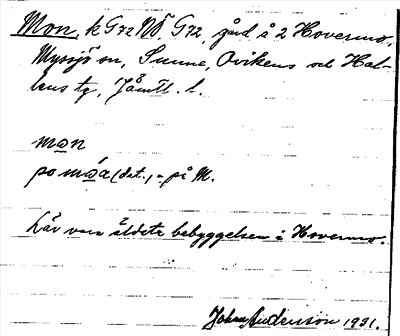 Mon, k G72 NÖ. G72, gård å 2 Hovermo,
Myssjö sn, Sunne, Ovikens och Hal-
lens tg, Jämtl. l.
mo̲n
po mo̲a (dat.) = på M.
Lär vara äldete bebyggelsen i Hovermo.
Johan Anderson 1931.